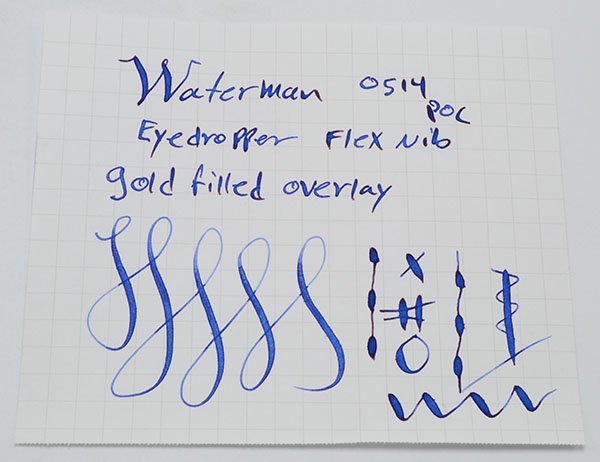 Waterman 0514
POC
Eyedropper Flex Nib
gold filled overlay